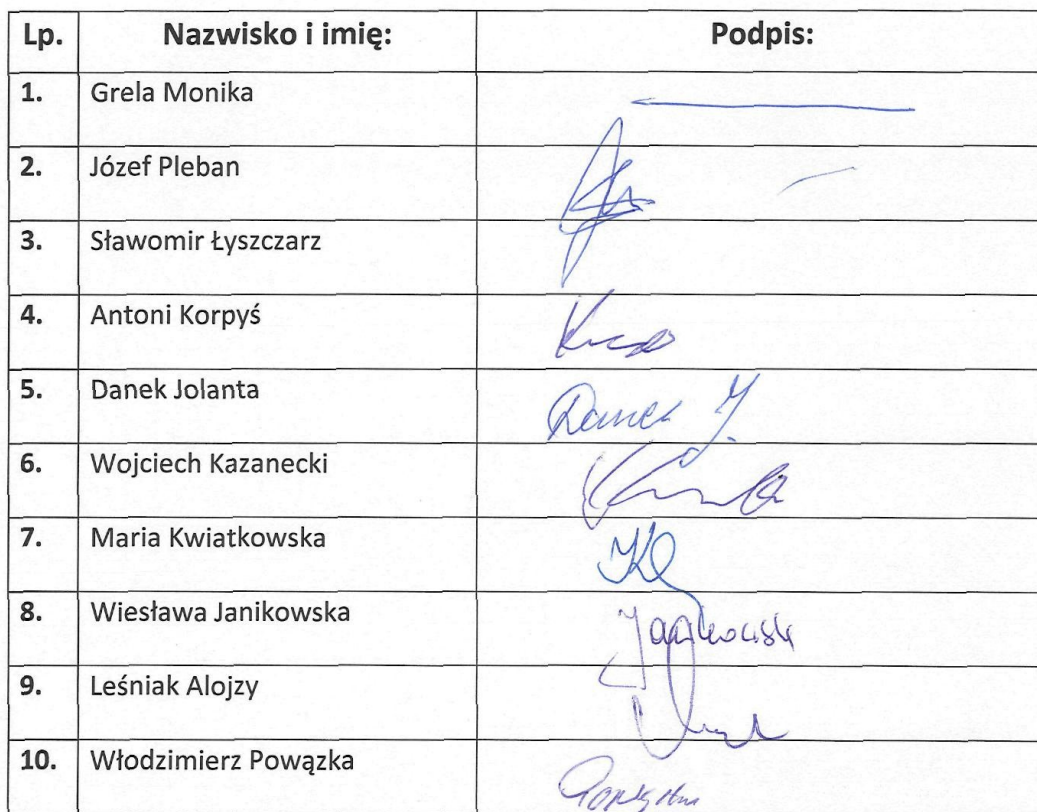 Lp. Nazwisko i imię: Podpis:
1. Grela Monika
2. Józef Pleban
3. Sławomir Łyszczarz
4. Antoni Korpyś
5. Danek Jolanta Danek J.
6. Wojciech Kazanecki
7. Maria Kwiatkowska
8. Wiesława Janikowska
9. Leśniak Alojzy
10. Włodzimierz Powązka